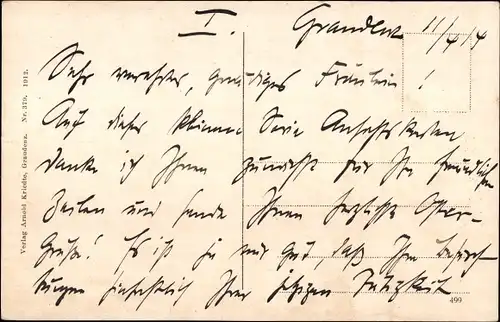 I. Graudenz 11/4 14
Sehr verehrtes, gnädiges Fräulein!
Auf dieser kleinen Serie Ansichtskarten
danke ich Ihnen zunächst für Ihre freundlichen
Zeilen und sende Ihnen herzlichste Oster-
Grüße! Es ist ja nur gut, daß Ihre Befürch-
tungen hinsichtlich Ihrer jetzigen Tätigkeit
Verlag Arnold Kriedte, Graudenz. Nr. 379. 1912.
499